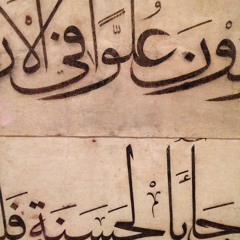 دون عُلُوًّا فى الار
جاء بالحسنة فله